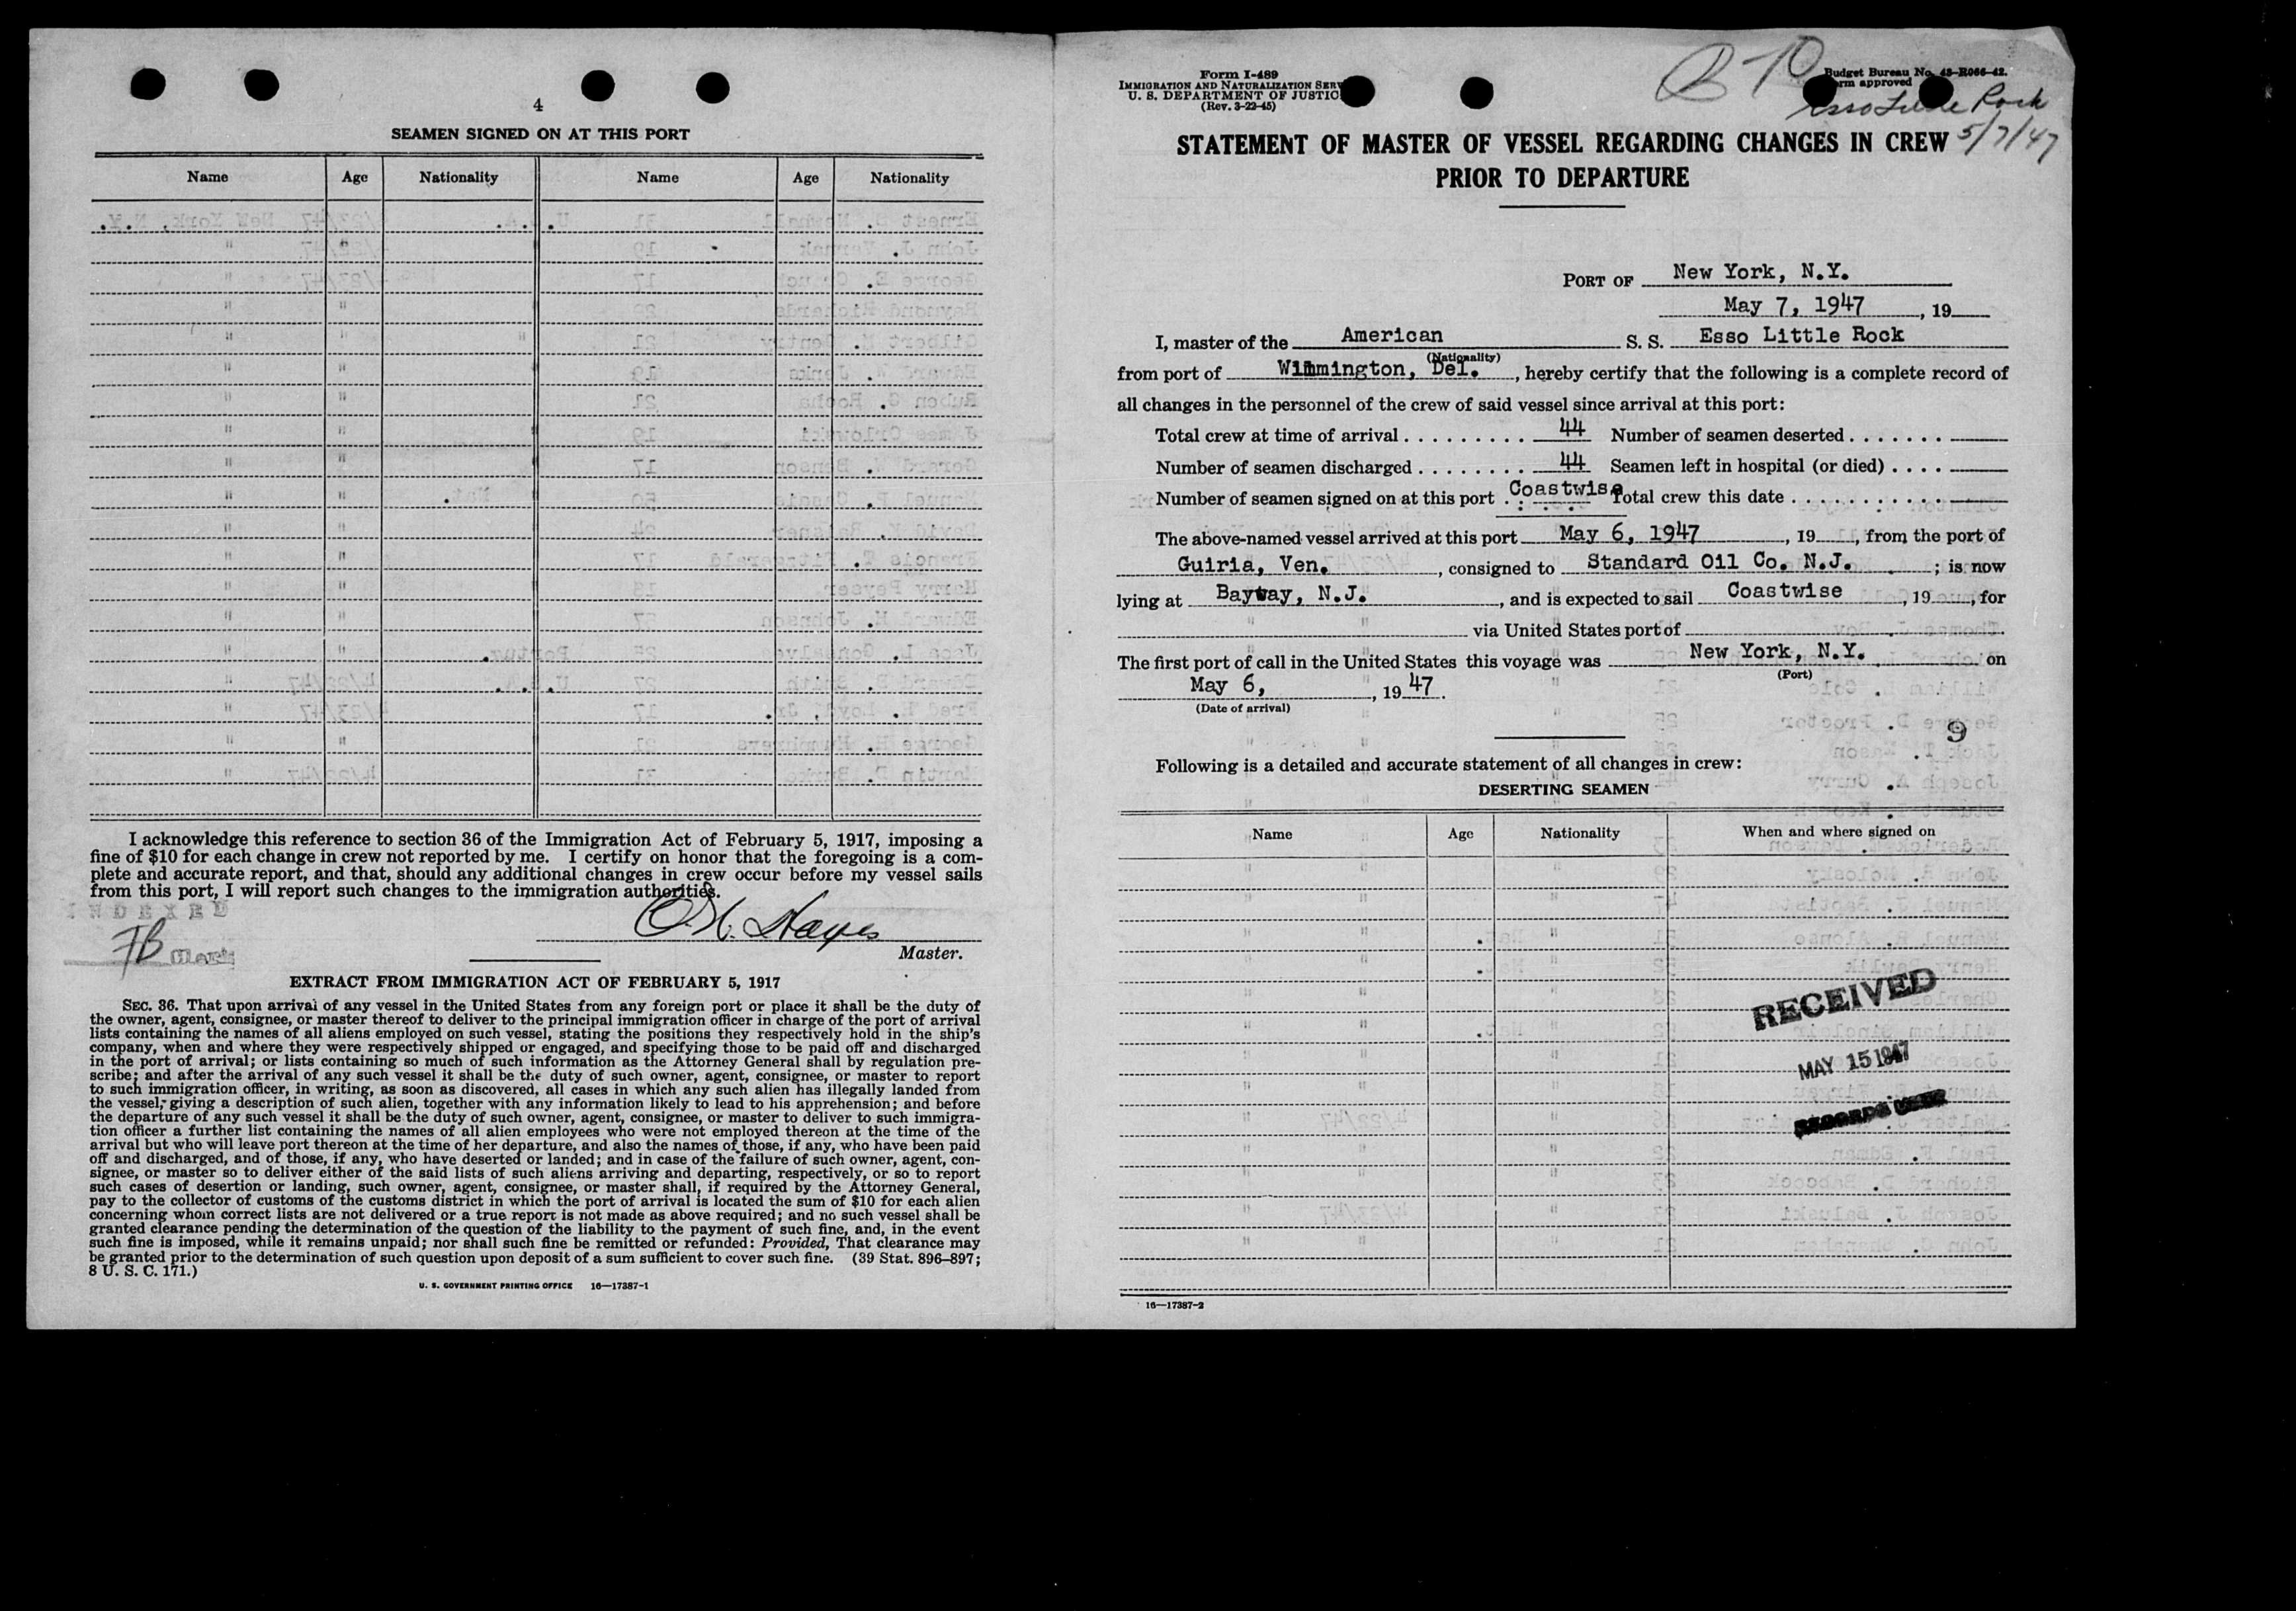 4
SEAMEN SIGNED ON AT THIS PORT
Name Age Nationality Name Age Nationality
I acknowledge this reference to section 36 of the Immigration Act of February 5, 1917, imposing a
fine of $10 for each change in crew not reported by me. I certify on honor that the foregoing is a com-
plete and accurate report, and that, should any additional changes in crew occur before my vessel sails
from this port, I will report such changes to the immigration authorities.
INDEXED
O.H. Hayes
Master.
FB Clerk
EXTRACT FROM IMMIGRATION ACT OF FEBRUARY 5, 1917
SEC. 36. That upon arrival of any vessel in the United States from any foreign port or place it shall be the duty of
the owner, agent, consignee, or master thereof to deliver to the principal immigration officer in charge of the port of arrival
lists containing the names of all aliens employed on such vessel, stating the positions they respectively hold in the ship's
company, when and where they were respectively shipped or engaged, and specifying those to be paid off and discharged
in the port of arrival; or lists containing so much of such information as the Attorney General shall by regulation pre-
scribe; and after the arrival of any such vessel it shall be the duty of such owner, agent, consignee, or master to report
to such immigration officer, in writing, as soon as discovered, all cases in which any such alien has illegally landed from
the vessel, giving a description of such alien, together with any information likely to lead to his apprehension; and before
the departure of any such vessel it shall be the duty of such owner, agent, consignee, or master to deliver to such immigra-
tion officer a further list containing the names of all alien employees who were not employed thereon at the time of the
arrival but who will leave port thereon at the time of her departure, and also the names of those, if any, who have been paid
off and discharged, and of those, if any, who have deserted or landed; and in case of the failure of such owner, agent, con-
signee, or master so to deliver either of the said lists of such aliens arriving and departing, respectively, or so to report
such cases of desertion or landing, such owner, agent, consignee, or master shall, if required by the Attorney General,
pay to the collector of customs of the customs district in which the port of arrival is located the sum of $10 for each alien
concerning whom correct lists are not delivered or a true report is not made as above required; and no such vessel shall be
granted clearance pending the determination of the question of the liability to the payment of such fine, and, in the event
such fine is imposed, while it remains unpaid; nor shall such fine be remitted or refunded: Provided, That clearance may
be granted prior to the determination of such question upon deposit of a sum sufficient to cover such fine. (39 Stat. 896–897;
8 U. S. C. 171.)
U. S. GOVERNMENT PRINTING OFFICE 16—17387-1
Form I-489
IMMIGRATION AND NATURALIZATION SERV
U. S. DEPARTMENT OF JUSTIC
(Rev. 3-22-45)
Budget Bureau No. 43-R066-42.
rm approved
Esso Little Rock
5/7/47
STATEMENT OF MASTER OF VESSEL REGARDING CHANGES IN CREW
PRIOR TO DEPARTURE
PORT OF New York, N.Y.
May 7, 1947, 19
I, master of the American S. S. Esso Little Rock
(Nationality)
from port of Wilmington, Del., hereby certify that the following is a complete record of
all changes in the personnel of the crew of said vessel since arrival at this port:
Total crew at time of arrival . . . . . . . . . 44 Number of seamen deserted . . . . . . .
Number of seamen discharged . . . . . . . . 44 Seamen left in hospital (or died) . . . .
Number of seamen signed on at this port Coastwise Total crew this date . . . . . . . . . . .
The above-named vessel arrived at this port May 6, 1947, 19, from the port of
Guiria, Ven., consigned to Standard Oil Co. N.J. ; is now
lying at Bayway, N.J., and is expected to sail Coastwise, 19, for
via United States port of
The first port of call in the United States this voyage was New York, N.Y. on
(Port)
May 6, 1947.
(Date of arrival)
9
Following is a detailed and accurate statement of all changes in crew:
DESERTING SEAMEN
Name Age Nationality When and where signed on
RECEIVED
MAY 15 1947
16—17387-2